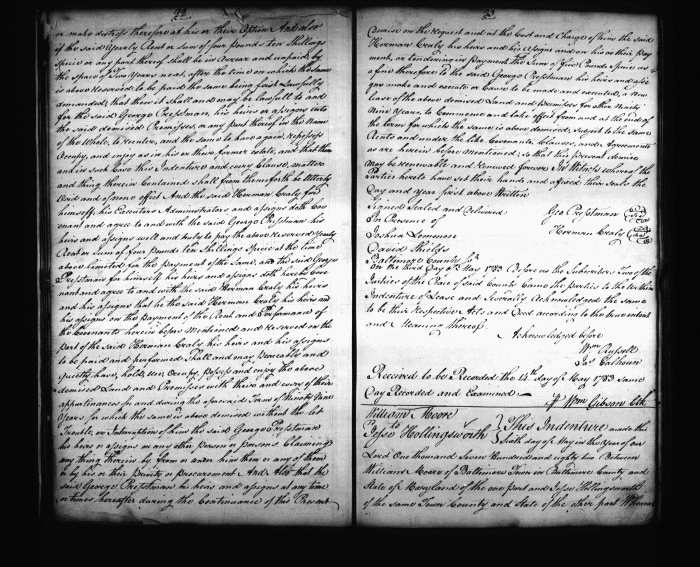 92
or make distress therefore at his or their Option And also
of the said Yearly Rent or Sum of four Pounds ten Shillings
Specie or any part thereof shall be in Arrear and unpaid by
the Space of Two Years next after the time on which the same
is above Reserved to be paid the same being first Lawfully
demanded, that then it shall and may be lawfull to and
for the said George Presstman, his heirs or assigns into
the said demised Premises, or any part thereof in the Name
of the Whole, to Reenter, and the same to have again, repossess
Occupy, and enjoy as in his or their former estate, and that then
and in such Case this Indenture and every Clause, matter
and thing therein Contained shall from thenceforth be Utterly
Void and of none effect And the said Herman Craly for
himself, his Executors Administrators and assigns doth Cov
enant and agree to and with the said George Presstman his
heirs and assigns well and truly to pay the above Reserved Yearly
Rent or Sum of four Pounds ten Shillings Specie at the time
above limited for the payment of the Same, and the said George
Presstman for himself his heirs and assigns doth hereby Cove
nant and agree to and with the said Herman Craly his heirs
and his assigns that he the said Herman Craly his heirs or
his assigns on the Payment of the Rent and Performance of
the Covenants herein before Mentioned and Reserved on the
part of the said Herman Craly his heirs and his assigns
to be paid and performed Shall and may Peaceably and
Quietly have, hold, Use, Occupy, Possess and enjoy the above
demised Land and Premises with theirs and every of their
appurtenances for and during the aforesaid Term of Ninety Nine
Years for which the same is above demised without the let
Trouble, or Interruption of him the said George Presstman
his heirs or assigns or any other person or persons Claiming
any thing therein by from or under him them or any of them
or by his or their privity or procurement And Also that the
said George Presstman his heirs and assigns at any time
or times hereafter during the Continuance of this Present
93
Demise on the request and at the Cost and Charge of him the said
Herman Craly his heirs and his assigns and on his or their Pay
ment, or tendering in Payment the Sum of Pounds Specie as
a fine therefore to the said George Presstman his heirs and assi
gns make and execute or Cause to be made and executed, a New
lease of the above demised Land and Premises for other Ninety
Nine Years, to Commence and take effect from and at the end of
the term for which the same is above demised, subject to the same
Rents and under the like Covenants Clauses, and Agreements
as are herein before mentioned, so that this present demise
may be renewable and Renewed forever In Witness whereof the
Parties hereto have set their hands and affixed their Seals the
Day and Year first above Written
Signed Sealed and Delivered
In Presence of
Geo Presstman
Joshua Lemmon
Herman Craly
David Shields
Baltimore County
On the third Day of May 1783 Before us the Subscribers Two of the
Justices of the Peace of said County Came the parties to the within
Indenture of Lease and Severally Acknowledged the same
to be their Respective Acts and Deed according to the true intent
and Meaning thereof.
Acknowledged before
Wm Russell
Jas Calhoun
Received to be Recorded the 14th day of May 1783 Same
Day Recorded and Examined
Wm Gibson Clk
William Moore
to
Jesse Hollingsworth
This Indenture made this
day of May in the Year of our
Lord One thousand Seven Hundred and eighty two Between
William Moore of Baltimore Town in Baltimore County and
State of Maryland of the one part and Jesse Hollingsworth
of the same Town County and State of the other part Whereas